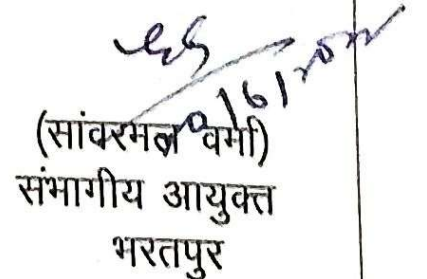 (सांवरमल वर्मा)
संभागीय आयुक्त
भरतपुर